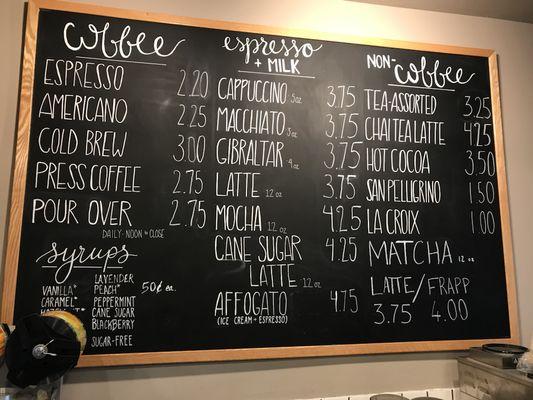 coffee
ESPRESSO 2.20
AMERICANO 2.25
COLD BREW 3.00
PRESS COFFEE 2.75
POUR OVER 2.75
DAILY-NOON to CLOSE
syrups
LAVENDER
VANILLA* PEACH* 50¢ ea.
CARAMEL PEPPERMINT
CANE SUGAR
BLACKBERRY
SUGAR-FREE
espresso
+ MILK
CAPPUCCINO 5oz 3.75
MACCHIATO 3oz 3.75
GIBRALTAR 4oz 3.75
LATTE 12oz 3.75
MOCHA 12oz 4.25
CANE SUGAR 4.25
LATTE 12oz
AFFOGATO 4.75
(ICE CREAM + ESPRESSO)
NON-coffee
TEA-ASSORTED 3.25
CHAI TEA LATTE 4.25
HOT COCOA 3.50
SAN PELLIGRINO 1.50
LA CROIX 1.00
MATCHA 12oz
LATTE/FRAPP
3.75 4.00